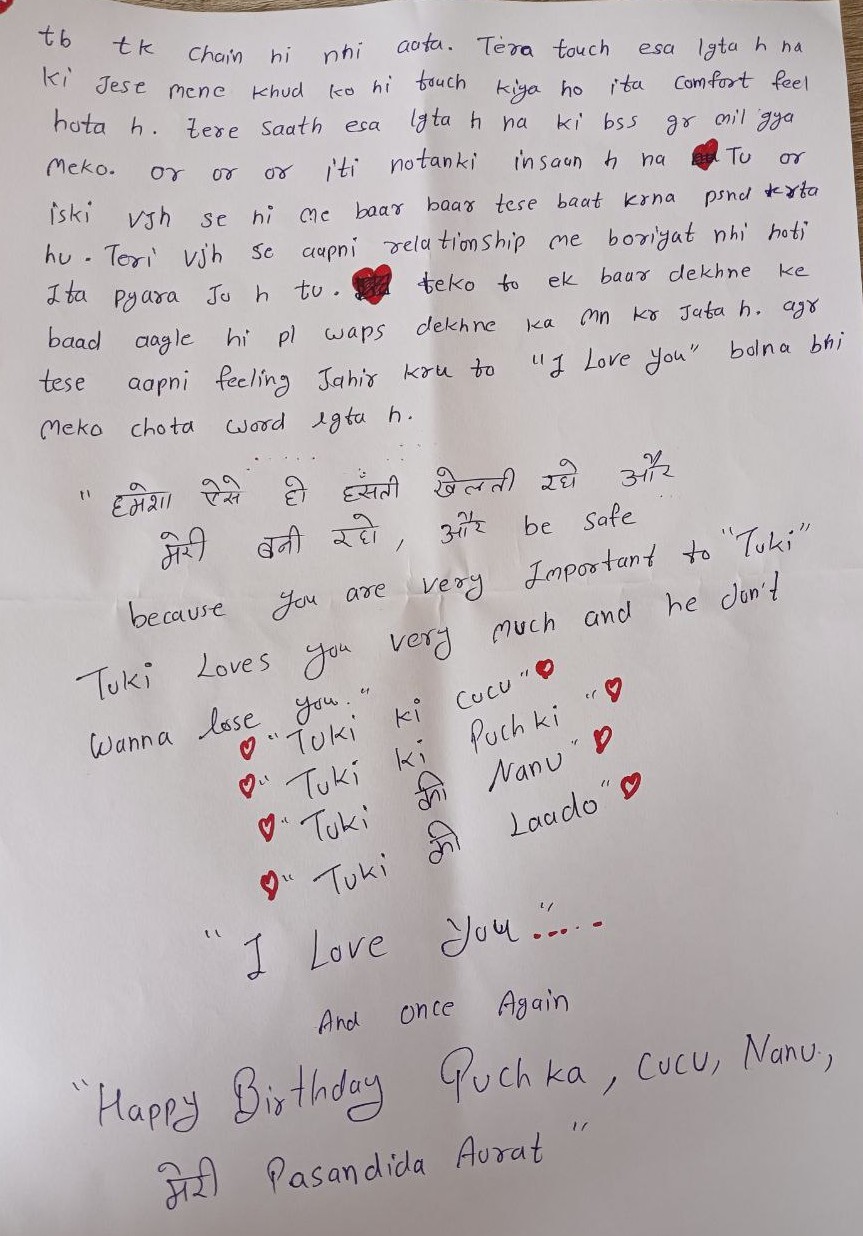 tb tk chain hi nhi aata. Tera touch esa lgta h na
ki Jese mene khud ko hi touch kiya ho ita comfort feel
hota h. tere saath esa lgta h na ki bss gr mil gya
meko. or or or iti notanki insaan h na Tu or
iski vjh se hi me baar baar tese baat krna psnd krta
hu. Teri vjh se aapni relationship me boriyat nhi hoti
Ita pyara Ju h tu. teko to ek baar dekhne ke
baad aagle hi pl waps dekhne ka mn kr Jata h. agr
tese aapni feeling Jahir kru to "I Love you" bolna bhi
meko chota word lgta h.
"हमेशा ऐसे ही हँसती खेलती रहो और
मेरी बनी रहो, और be safe
because you are very Important to "Tuki"
Tuki Loves you very much and he don't
wanna lose you."
"Tuki ki cucu"
"Tuki ki Puchki"
"Tuki की Nanu"
"Tuki की Laado"
"I Love you".....
And once Again
"Happy Birthday Puchka, cucu, Nanu,
मेरी Pasandida Aurat"